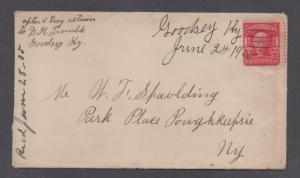 after 5 Day return
to D. H. Trimble
Goodsey Ky.
Goodsey Ky
June 24 19
Mr W. F. Spaulding
Park Place Poughkeepsie
Ny
Recd June 28-05